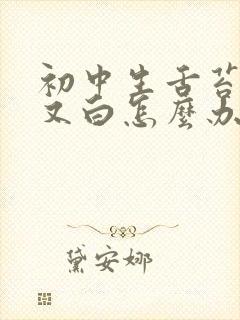 初中生舌苔
又白怎麼办
黛安娜